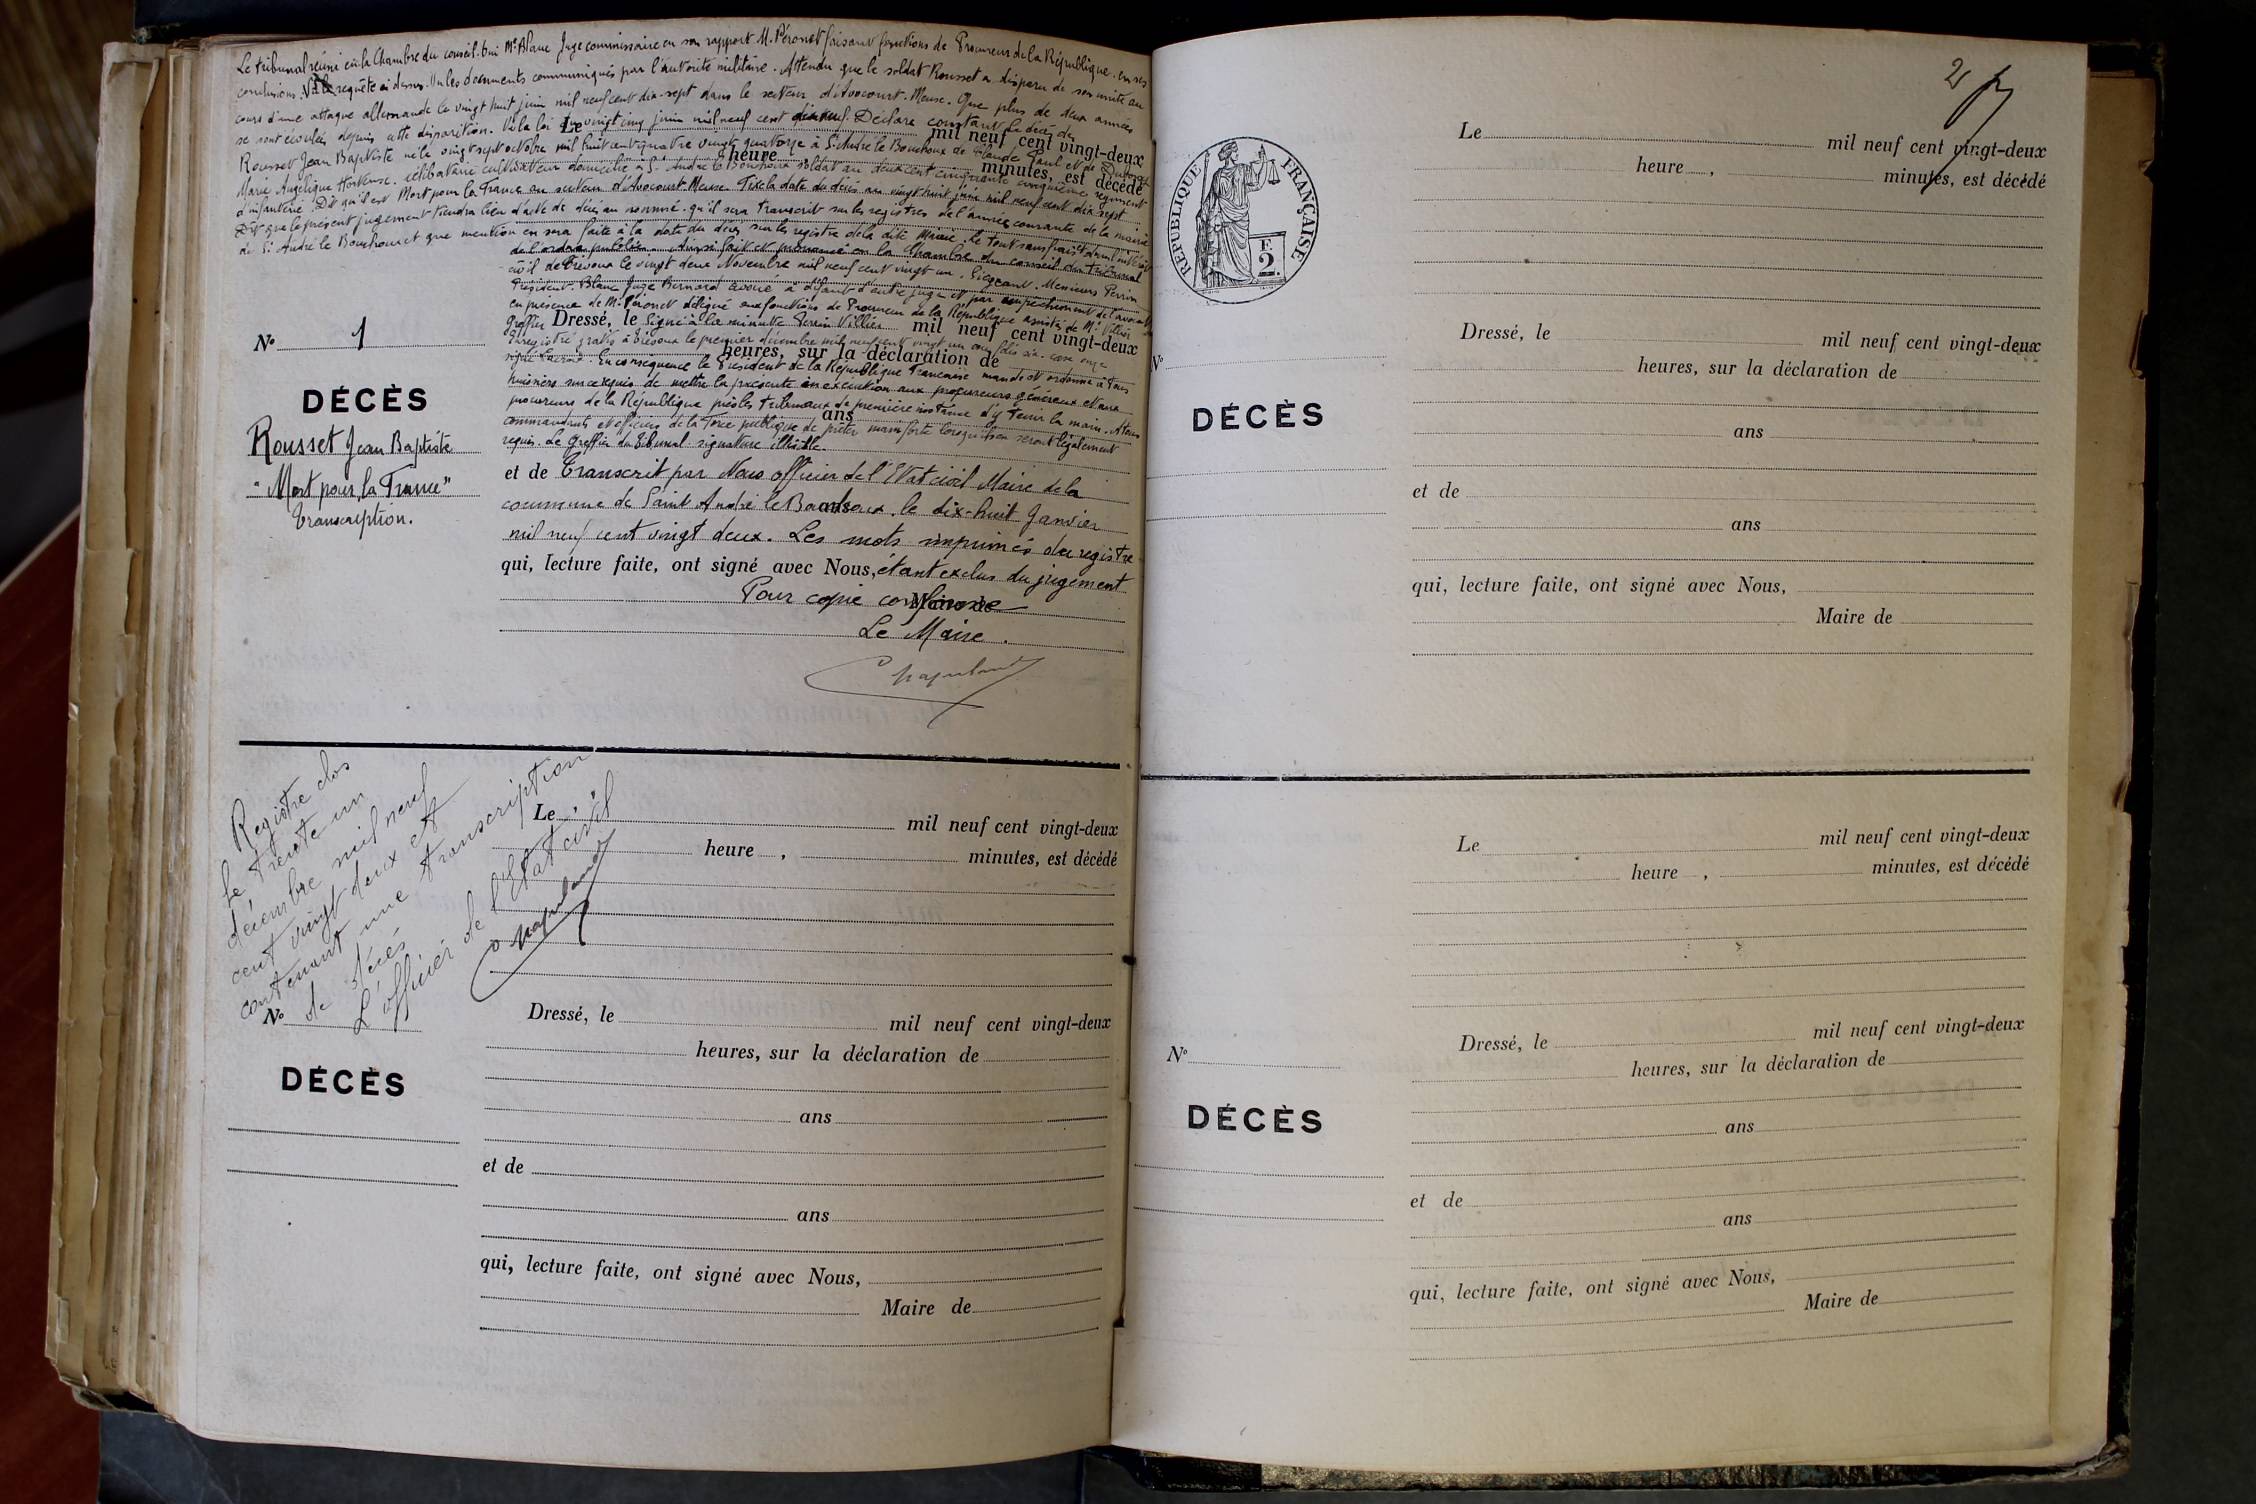 Le tribunal réuni en la Chambre du conseil. Oui Mr Blanc Juge commissaire en son rapport M. Péronet faisant fonctions de Procureur de la République en ses
conclusions. Vu la requête ci dessus. Vu les documents communiqués par l'autorité militaire. Attendu que le soldat Rousset a disparu de son unité au
cours d'une attaque allemande le vingt huit juin mil neuf cent dix-sept dans le secteur d'Avocourt. Meuse. Que plus de deux années
se sont écoulées depuis cette disparition. Vu la loi du vingt cinq juin mil neuf cent dix neuf. Déclare constant le décès de
Le mil neuf cent vingt-deux
Rousset Jean Baptiste né le vingt sept octobre mil huit cent quatre vingt quatorze à St André le Bouchoux de Claude Paul et de
heure , minutes, est décédé
Marie Angélique Hortense. célibataire cultivateur domicilié à St André le Bouchoux soldat au deux cent cinquante cinquième régiment
d'infanterie. Dit qu'il est Mort pour la France au secteur d'Avocourt Meuse. Fixe la date du décès au vingt huit juin mil neuf cent dix sept
Dit que le présent jugement tiendra lieu d'acte de décès au nommé. qu'il sera transcrit sur les registres de l'année courante de la mairie
de St André le Bouchoux et que mention en sera faite à la date du décès sur les registre de la dite Mairie. Le tout sans frais
de l'ordre public. Ainsi fait et prononcé en la Chambre du conseil du tribunal
civil de Trévoux le vingt deux Novembre mil neuf cent vingt un. Siégeant. Messieurs Perrin
Président. Blanc Juge Bernard avoué à défaut d'autre juge et par empêchement
en présence de Mr Péronet délégué aux fonctions de Procureur de la République assistés de Mr Villier
greffier Dressé, le Signé à la minute Perrin Villier mil neuf cent vingt-deux
Enregistré gratis à Trévoux le premier décembre mil neuf cent vingt un
heures, sur la déclaration de
En conséquence le Président de la République Française mande et ordonne à tous
huissiers sur ce requis de mettre la présente en exécution aux procureurs généraux et aux
procureurs de la République près les tribunaux de première instance d'y tenir la main. A tous
ans
commandants et officiers de la Force publique de prêter main forte lorsqu'ils en seront légalement
requis. Le Greffier du Tribunal signature illisible.
No 1
DÉCÈS
Rousset Jean Baptiste
"Mort pour la France"
Transcription.
et de Transcrit par Nous officier de l'Etat civil Maire de la
commune de Saint André le Bouchoux. le dix-huit Janvier
ans
mil neuf cent vingt deux. Les mots imprimés du registre
qui, lecture faite, ont signé avec Nous, étant exclus du jugement
Pour copie conforme
Maire de
Le Maire.
Registre clos
le trente un
décembre mil neuf
cent vingt deux et
contenant une transcription
de décès
L'officier de l'Etat civil
Le mil neuf cent vingt-deux
heure , minutes, est décédé
No
DÉCÈS
Dressé, le mil neuf cent vingt-deux
heures, sur la déclaration de
ans
et de
ans
qui, lecture faite, ont signé avec Nous,
Maire de
2
RÉPUBLIQUE FRANÇAISE
E
2.
Le mil neuf cent vingt-deux
heure , minutes, est décédé
No
DÉCÈS
Dressé, le mil neuf cent vingt-deux
heures, sur la déclaration de
ans
et de
ans
qui, lecture faite, ont signé avec Nous,
Maire de
Le mil neuf cent vingt-deux
heure , minutes, est décédé
No
DÉCÈS
Dressé, le mil neuf cent vingt-deux
heures, sur la déclaration de
ans
et de
ans
qui, lecture faite, ont signé avec Nous,
Maire de